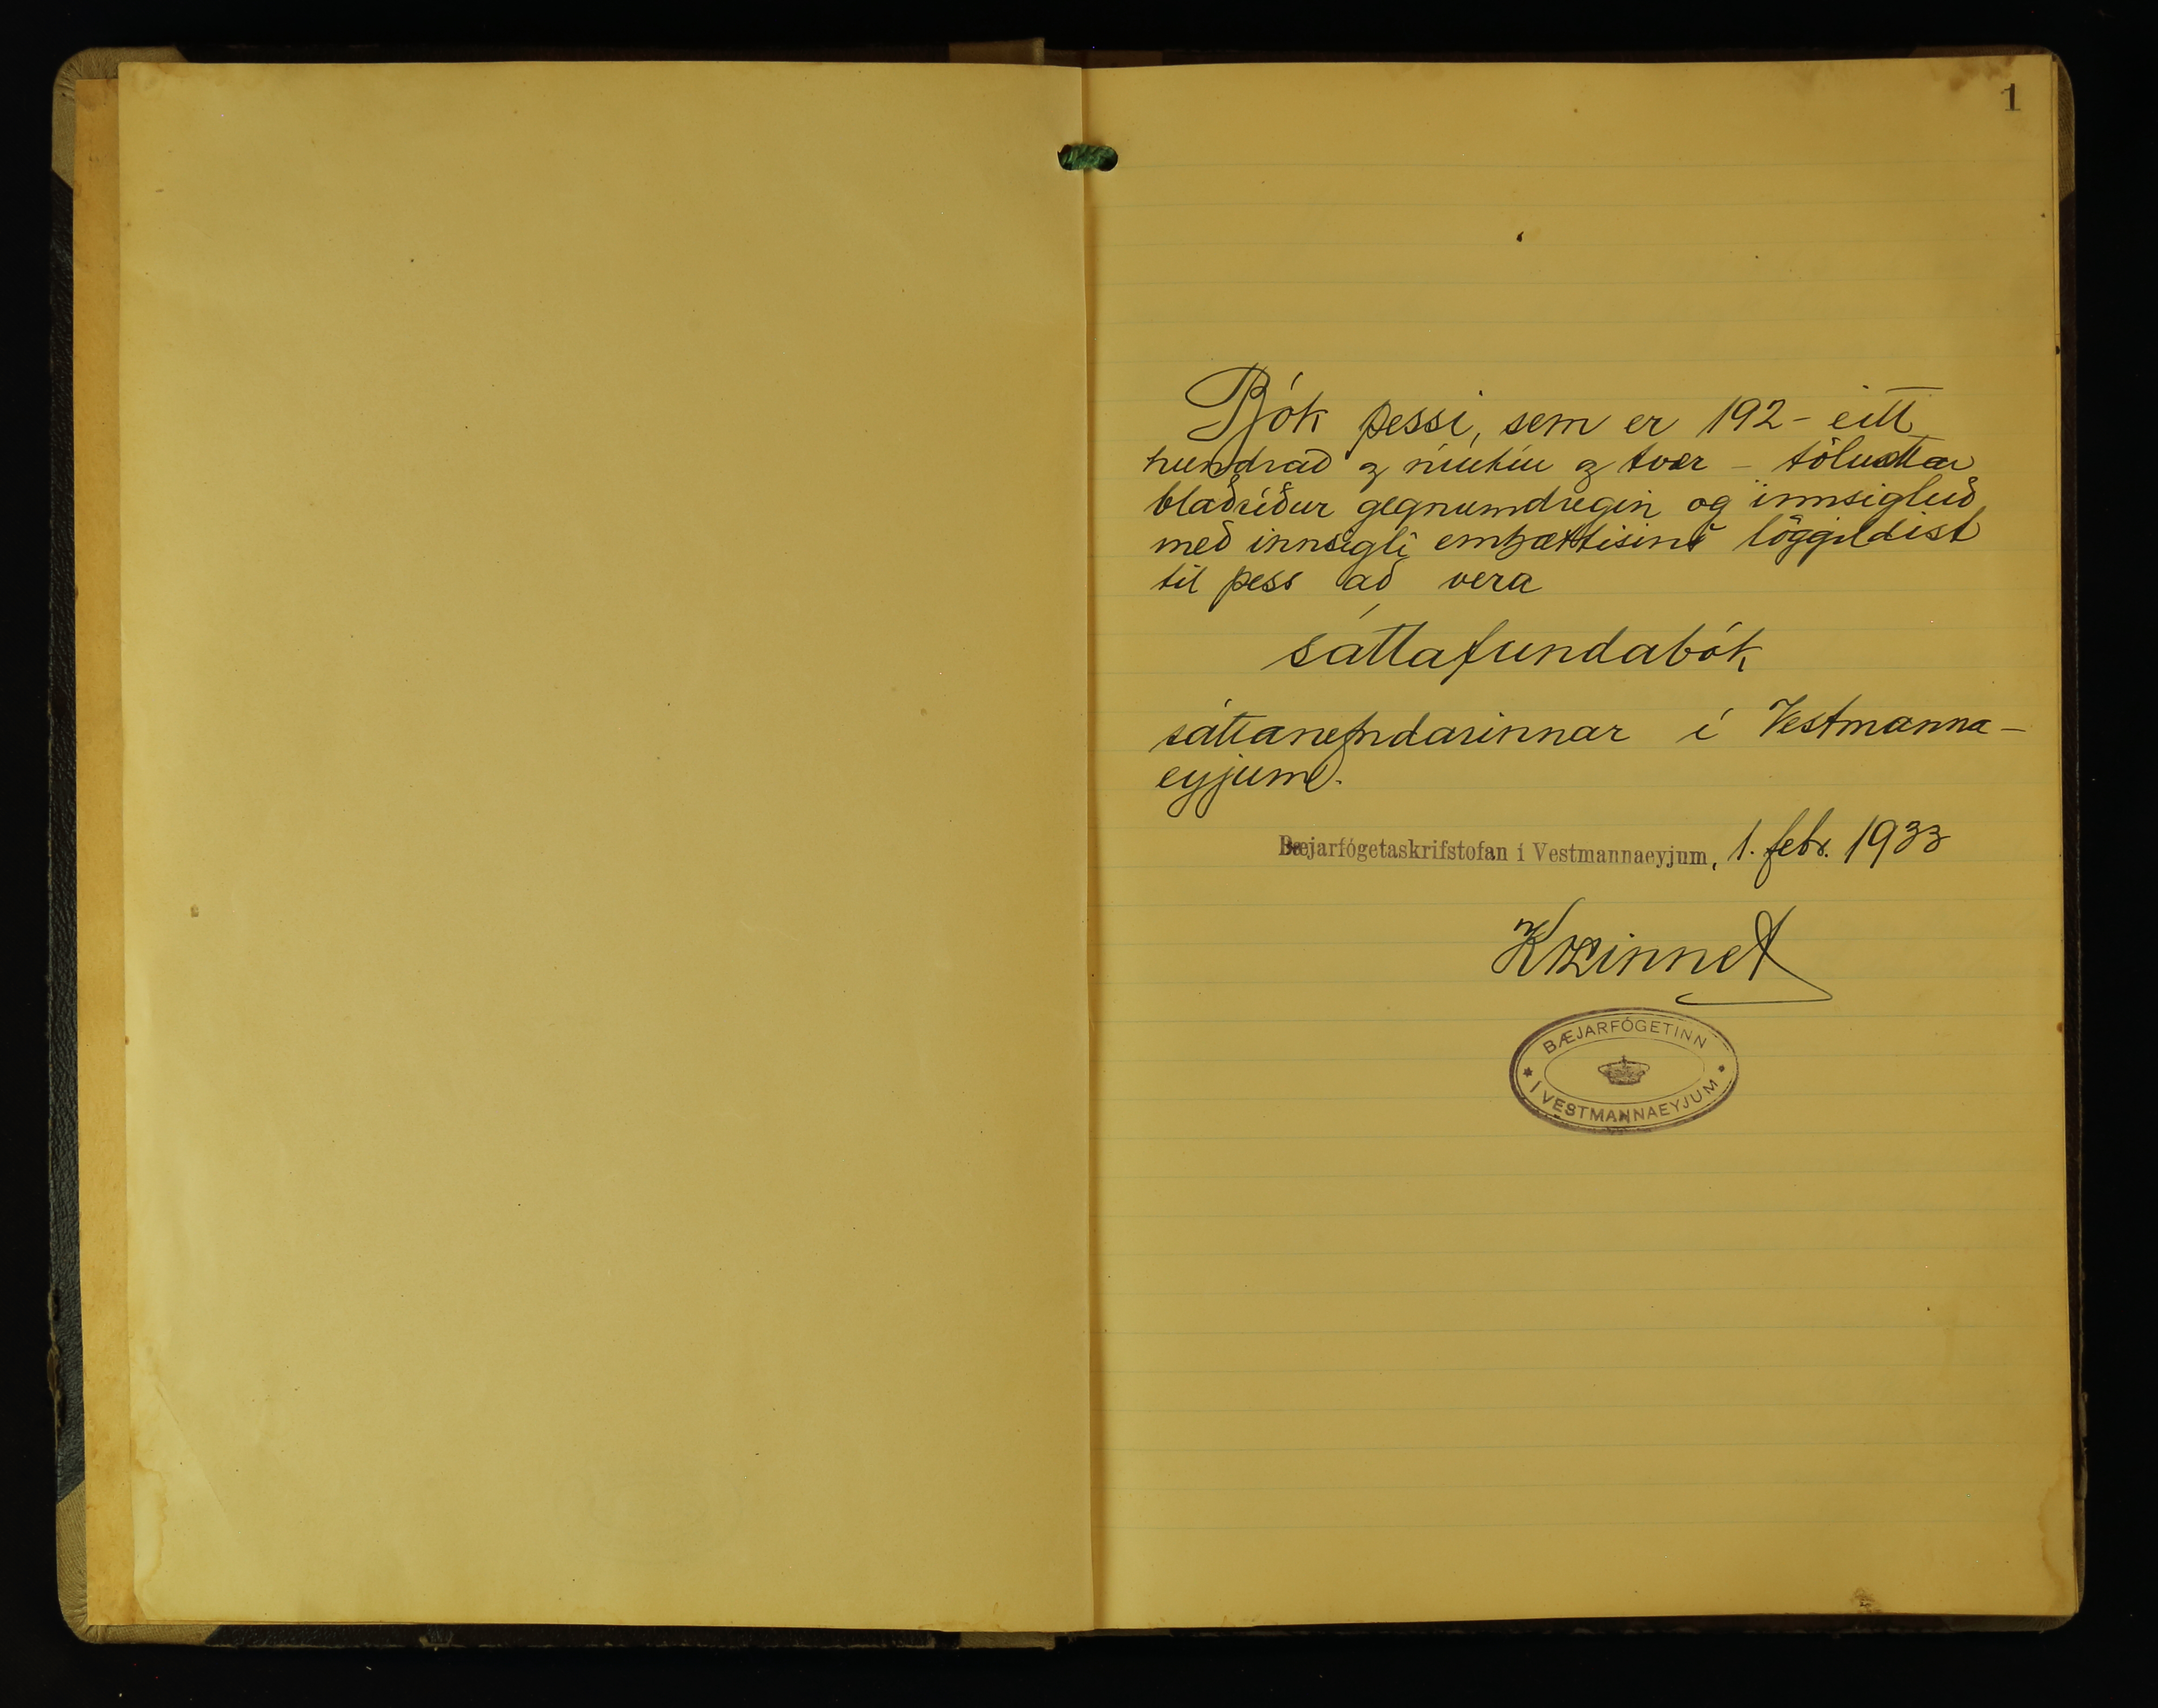 1
Bók þessi, sem er 192 - eitt
hundrað og níutíu og tvær - tölusettar
blaðsíður gegnumdregin og innsigluð
með innsigli embættisins löggildist
til þess að vera
sáttafundabók
sáttanefndarinnar í Vestmanna-
eyjum.
Bæjarfógetaskrifstofan í Vestmannaeyjum, 1. febr. 1933
Kr Linnet
BÆJARFÓGETINN
* Í VESTMANNAEYJUM *